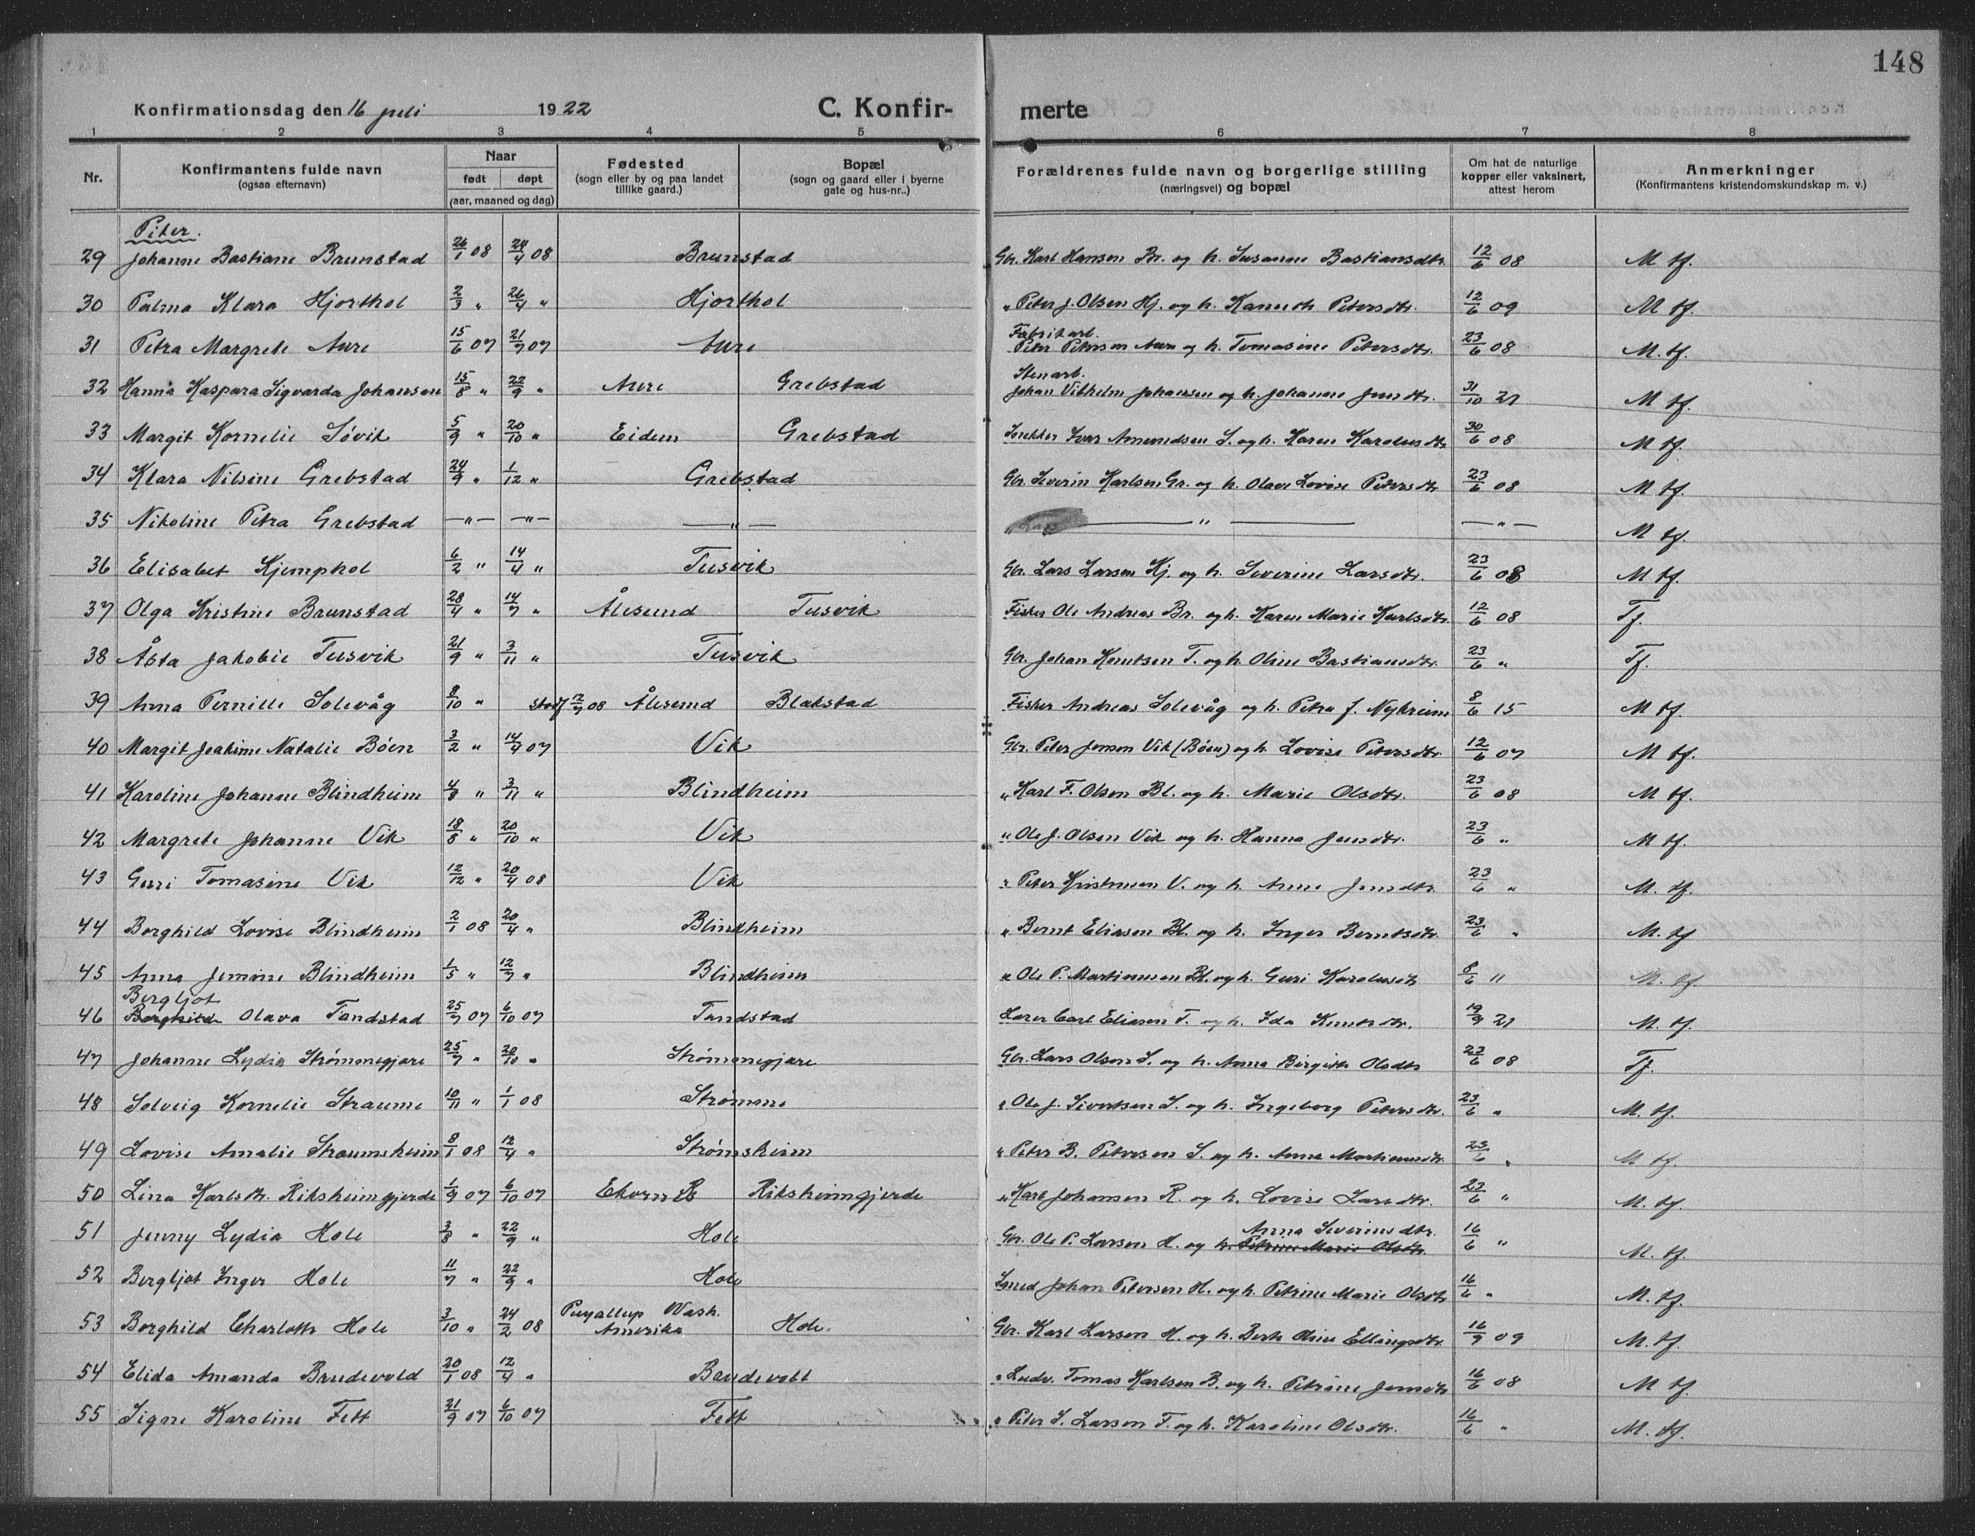 148
Konfirmationsdag den 16 juli 1922 C. Konfir- merte
1 2 3 4 5 6 7 8
Nr. Konfirmantens fulde navn (ogsaa efternavn) Naar født døpt (aar, maaned og dag) Fødested (sogn eller by og paa landet tillike gaard.) Bopæl (sogn og gaard eller i byerne gate og hus-nr.) Forældrenes fulde navn og borgerlige stilling (næringsvei) og bopæl Om hat de naturlige kopper eller vaksinert, attest herom Anmerkninger (Konfirmantens kristendomskundskap m. v.)
Piker.
29 Johanne Bastiane Brunstad 26/1 08 24/4 08 Brunstad Gbr. Karl Hansen Br. og h. Susanne Bastiansdtr. 12/6 08 M tf.
30 Palma Klara Hjorthol 2/3 " 26/4 " Hjorthol " Peter J. Olsen Hj. og h. Petersdtr. 12/6 09 M tf.
31 Petra Margrete Aure 15/6 07 21/7 07 Aure Fabrikarb. Peter Peterson Aure og h. Tomasine Petersdtr. 23/6 08 M. tf.
32 Hanna Kaspara Sigvarda Johansen 15/8 " 22/9 " Aure Grebstad Stenarb. Johan Vilhelm Johansen og h. Johanne Jensdtr. 31/10 21 M tf.
33 Margit Kornelie Søvik 5/9 " 20/10 " Eidem Grebstad Snekker Ivar Amundsen S. og h. Karen Karolusdtr 30/6 08 M tf.
34 Klara Nilsine Grebstad 24/9 " 1/12 " Grebstad Gbr. Severin Karlsen Gr. og h. Olave Lovise Petersdtr 23/6 08 M tf.
35 Nikoline Petra Grebstad —"— —"— — " — — " — —"— M tf.
36 Elisabet Kjemphol 6/2 " 14/4 " Tusvik Gbr. Lars Larsen Kj. og h. Severine Larsdtr. 23/6 08 M tf.
37 Olga Kristine Brunstad 28/4 " 14/7 " Ålesund Tusvik Fisker Ole Andreas Br. og h. Karen Marie Karlsdtr. 12/6 08 Tf.
38 Åsta Jakobie Tusvik 21/9 " 3/11 " Tusvik Gbr. Johan Knutsen T. og h. Oline Bastiansdtr. 23/6 " Tf.
39 Anna Pernille Solevåg 8/10 " 08 Ålesund Blakstad Fisker Andreas Solevåg og h. Petra J. Nykreim 8/6 15 M tf.
40 Margit Joakime Natalie Bøen 3/2 " 14/4 07 Vik Gbr. Peter Jensen Vik (Bøen) og h. Lovise Petersdtr. 12/6 07 M tf.
41 Karoline Johanne Blindheim 4/8 " 3/11 " Blindheim " Karl F. Olsen Bl. og h. Marie Olsdtr. 23/6 08 M tf.
42 Margrete Johanne Vik 18/8 " 20/10 " Vik " Ole J. Olsen Vik og h. Hanna Jensdtr. 23/6 " M tf.
43 Guri Tomasine Vik 12/12 " 20/4 08 Vik " Peter Kristensen V. og h. Anne Jensdtr. 23/6 " M. tf.
44 Borghild Lovise Blindheim 2/1 08 20/4 " Blindheim " Bernt Eliasen Bl. og h. Inger Berntsdtr. 23/6 " M. tf
45 Anna Jensine Blindheim 1/5 " 12/7 " Blindheim " Ole P. Martinussen Bl. og h. Guri Karolusdtr 8/6 " M. tf.
Bergljot
46 Borghild Olava Tandstad 25/7 07 6/10 07 Tandstad Lærer Carl Eliasen T. og h. Ida Knutsdtr. 19/9 21 M. tf.
47 Johanne Lydia Strømmegjære 25/7 " 20/10 " Strømmegjære Gbr. Lars Olsen S. og h. Anna Birgitte Olsdtr 23/6 08 Tf.
48 Solveig Kornelie Straume 10/11 " 1/1 08 Strømme " Ole J. Sivertsen S. og h. Ingeborg Petersdtr. 23/6 " M. tf.
49 Lovise Amalie Straumsheim 8/1 08 12/4 " Strømsheim " Peter B. Petersen S. og h. Anna Martinusdtr 23/6 " M tf.
50 Lina Karlsdtr. Riksheimgjerde 1/9 07 6/10 07 Ekornes Riksheimgjerde " Karl Johansen R. og h. Lovise Larsdtr. 23/6 " M. tf.
51 Jenny Lydia Hole 3/8 " 22/9 " Hole Gbr. Ole P. Larsen H. og h. Petrine Marie Olsdtr. Anna Severinsdtr. 16/6 " M. tf.
52 Bergljot Inger Hole 11/7 " 22/9 " Hole Smed Johan Petersen H. og h. Petrine Marie Olsdtr 16/6 " M. tf.
53 Borghild Charlotte Hole 3/10 " 24/2 08 Puyallup Wash. Amerika Hole. Gbr. Karl Larsen H. og h. Berte Oline Ellingsdtr 16/9 09 M. tf.
54 Elida Amanda Brudevold 20/1 08 12/4 " Brudevolt " Ludv. Tomas Karlsen B. og h. Petrine Jensdtr 16/6 08 M tf.
55 Signe Karoline Fett 21/9 07 6/10 07 Fett " Peter S. Larsen F. og h. Karoline Olsdtr. 16/6 " M. tf.